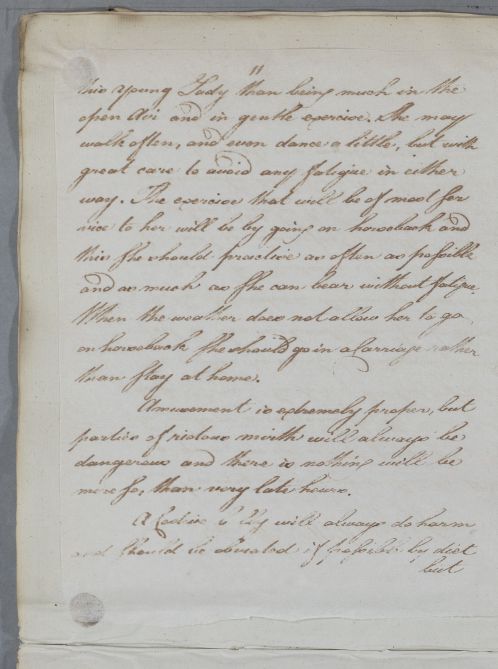 11
this young Lady than being much in the
open Air and in gentle exercise. She may
walk often, and even dance a little, but with
great care to avoid any fatigue in either
way. The exercise that will be of most ser
vice to her will be by going on horseback and
this She should practise as often as possible
and as much as She can bear without fatigue.
When the weather does not allow her to go
on horseback She should go in a Carriage rather
than stay at home.
Amusement is extremely proper, but
parties of riotous mirth will always be
dangerous and there is nothing will be
more so, than very late hours.
A Costive will always do harm
and should be obviated if possible by diet
but